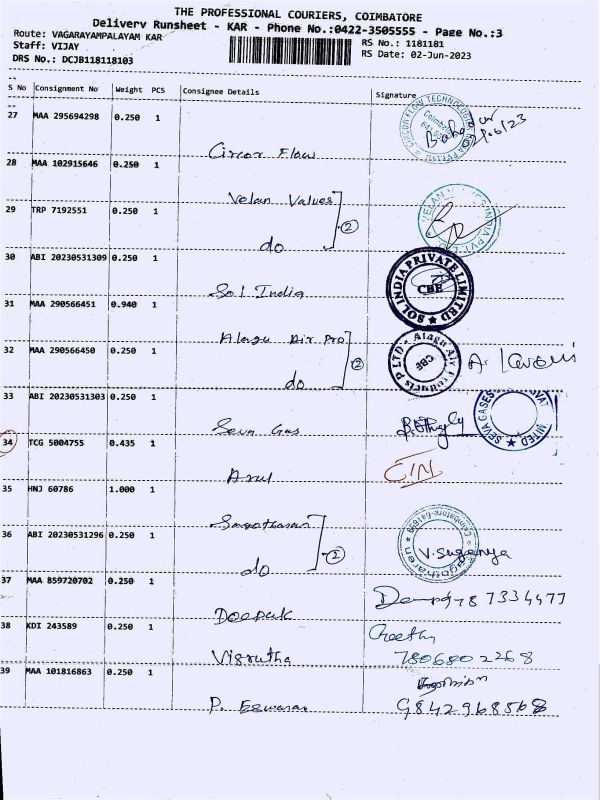 THE PROFESSIONAL COURIERS, COIMBATORE
Delivery Runsheet - KAR - Phone No.:0422-3505555 - Page No.:3
Route: VAGARAYAMPALAYAM KAR
RS No.: 1181181
Staff: VIJAY
RS Date: 02-Jun-2023
DRS No.: DCJB118118103
S No Consignment No Weight PCS Consignee Details Signature
27 MAA 295694298 0.250 1
Circor Flow
28 MAA 102915646 0.250 1
Velan Values
29 TRP 7192551 0.250 1
do 2
30 ABI 20230531309 0.250 1
Sol India
SOL INDIA PRIVATE LIMITED
CBE
31 MAA 290566451 0.940 1
Alagu Air Pro
32 MAA 290566450 0.250 1
do 2
Alagu Air Products P LTD
CBE
33 ABI 20230531303 0.250 1
Seva Gas
SEVA GASES
34 TCG 5004755 0.435 1
Arul
35 HNJ 60786 1.000 1
36 ABI 20230531296 0.250 1
do 2
V. Suganya
37 MAA 859720702 0.250 1
Deepak
38 KDI 243589 0.250 1
Visrutha
7806802268
39 MAA 101816863 0.250 1
P. Eswaran
9842968568